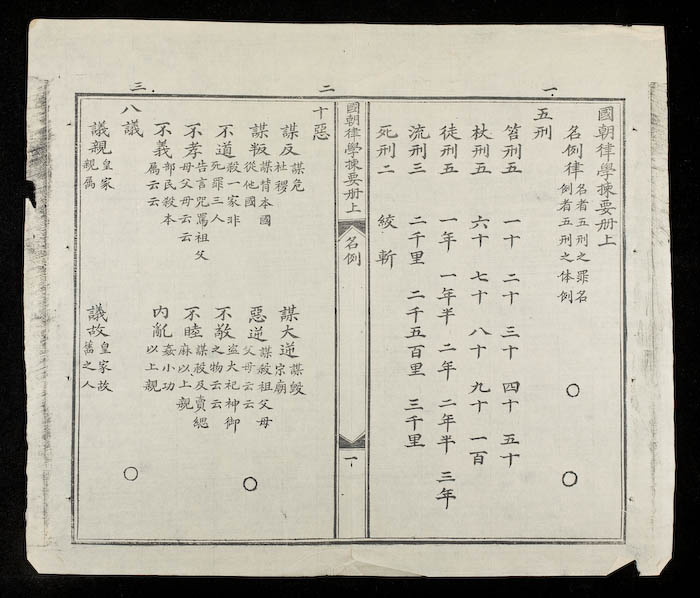 一
國朝律學揀要册上
名例律 名者五刑之罪名 例者五刑之体例
五刑
笞刑五 一十 二十 三十 四十 五十
杖刑五 六十 七十 八十 九十 一百
徒刑五 一年 一年半 二年 二年半 三年
流刑三 二千里 二千五百里 三千里
死刑二 絞 斬
國朝律學揀要册上 名例 一
二
十惡
謀反 謀危社稷 謀大逆 謀毀宗廟
謀叛 謀背本國從他國 惡逆 謀殺祖父母父母云云
不道 殺一家非死罪三人 不敬 盜大祀神御之物云云
不孝 告言咒罵祖父母父母云云 不睦 謀殺及賣緦麻以上親
不義 部民殺本属云云 内亂 姦小功以上親
三
八議
議親 皇家親属 議故 皇家故舊之人